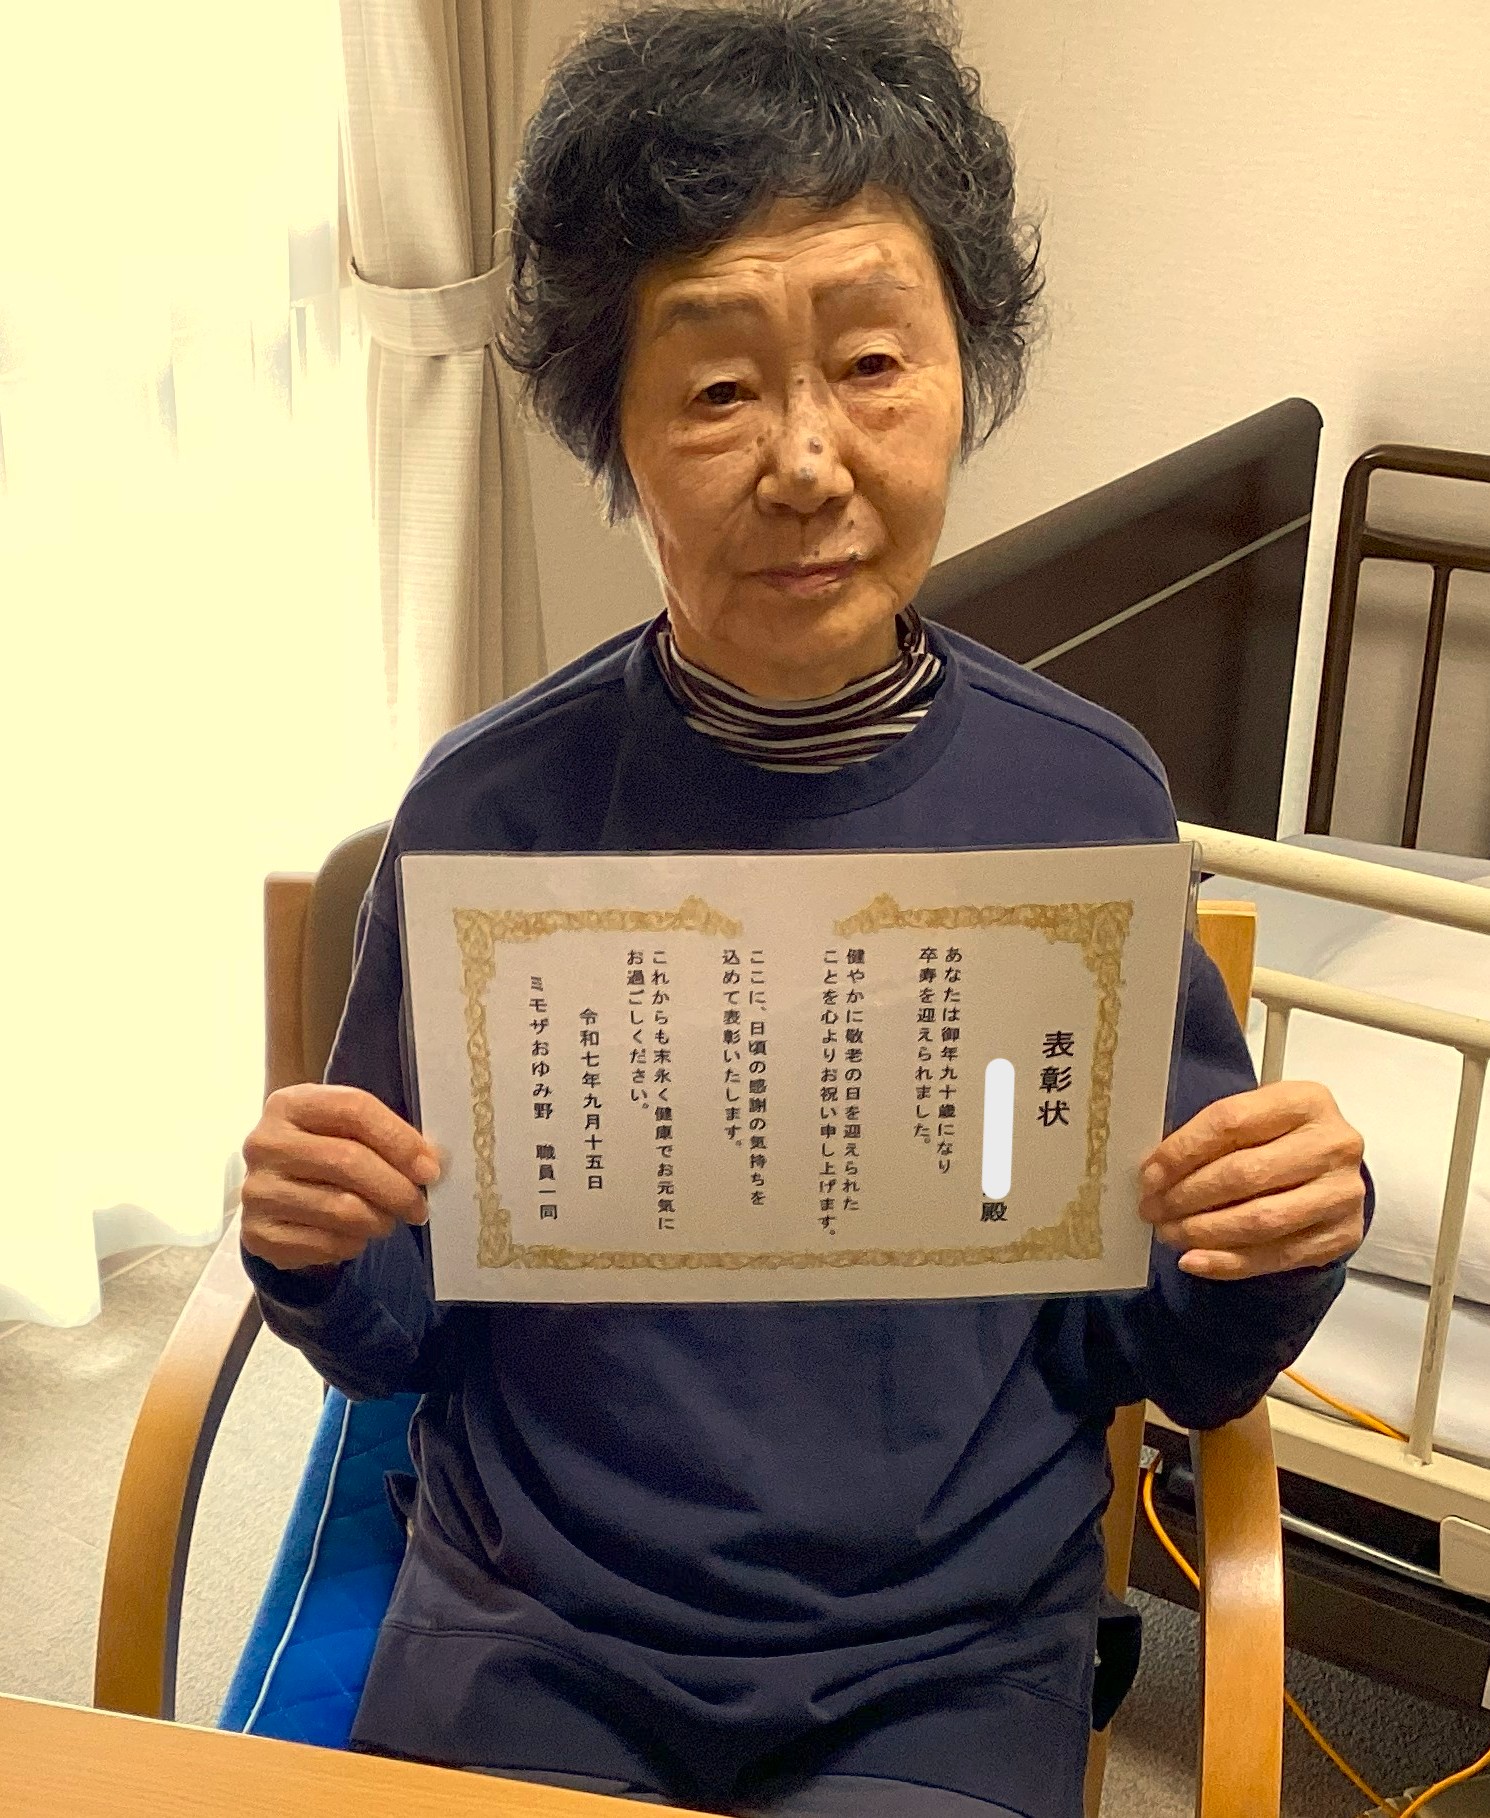 表彰状
殿
あなたは御年九十歳になり
卒寿を迎えられました。
健やかに敬老の日を迎えられた
ことを心よりお祝い申し上げます。
ここに、日頃の感謝の気持ちを
込めて表彰いたします。
これからも末永く健康でお元気に
お過ごしください。
令和七年九月十五日
ミモザおゆみ野　職員一同